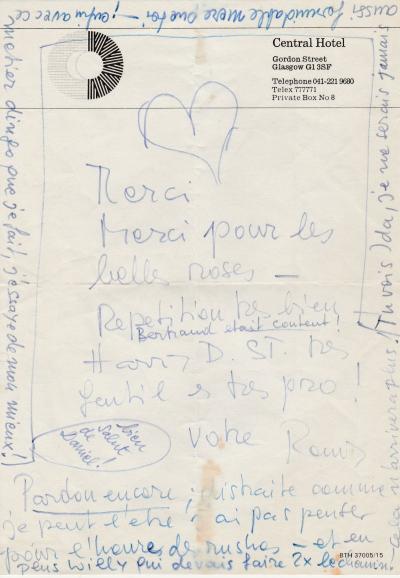 Central Hotel
Gordon Street
Glasgow G1 3SF
Telephone 041-221 9680
Telex 777771
Private Box No 8
Merci
Merci pour les
belles roses —
Repetition tres bien
Bertrand etait content!
Harry D. ST. tres
gentil e tres pro!
Votre Romy
bien
de salut
Daniel!
Pardon encore, distraite comme
je peut l'être j'ai pas penser
pour l'heure de rushes — et en
pens Willy qui devais faire 2x le chemin —
cela n'arrivera plus! (Tu vois Ida, je ne serais jamais
aussi formidable mere que toi — ; enfin avec ce
metier dingo que je fait, j'essaye de mon mieux!)
BTH 37005/15